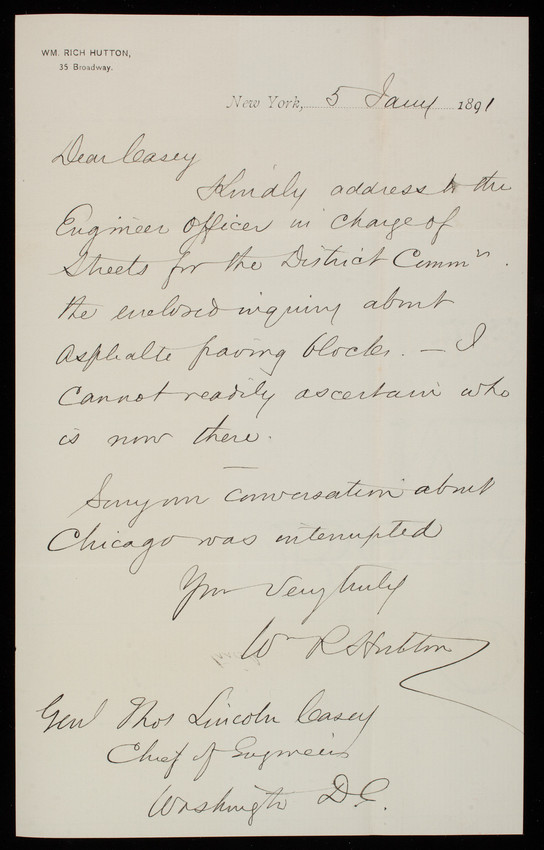 WM. RICH HUTTON,
35 Broadway.
New York, 5 Jany 1891
Dear Casey
Kindly address to the
Engineer Officer in charge of
Streets for the District Commrs.
the enclosed inquiry about
Asphalte paving blocks. — I
Cannot readily ascertain who
is now there.
Sorry our conversation about
Chicago was interrupted
Yrs Very truly
Wm R Hutton
Genl Thos Lincoln Casey
Chief of Engineers
Washington D.C.